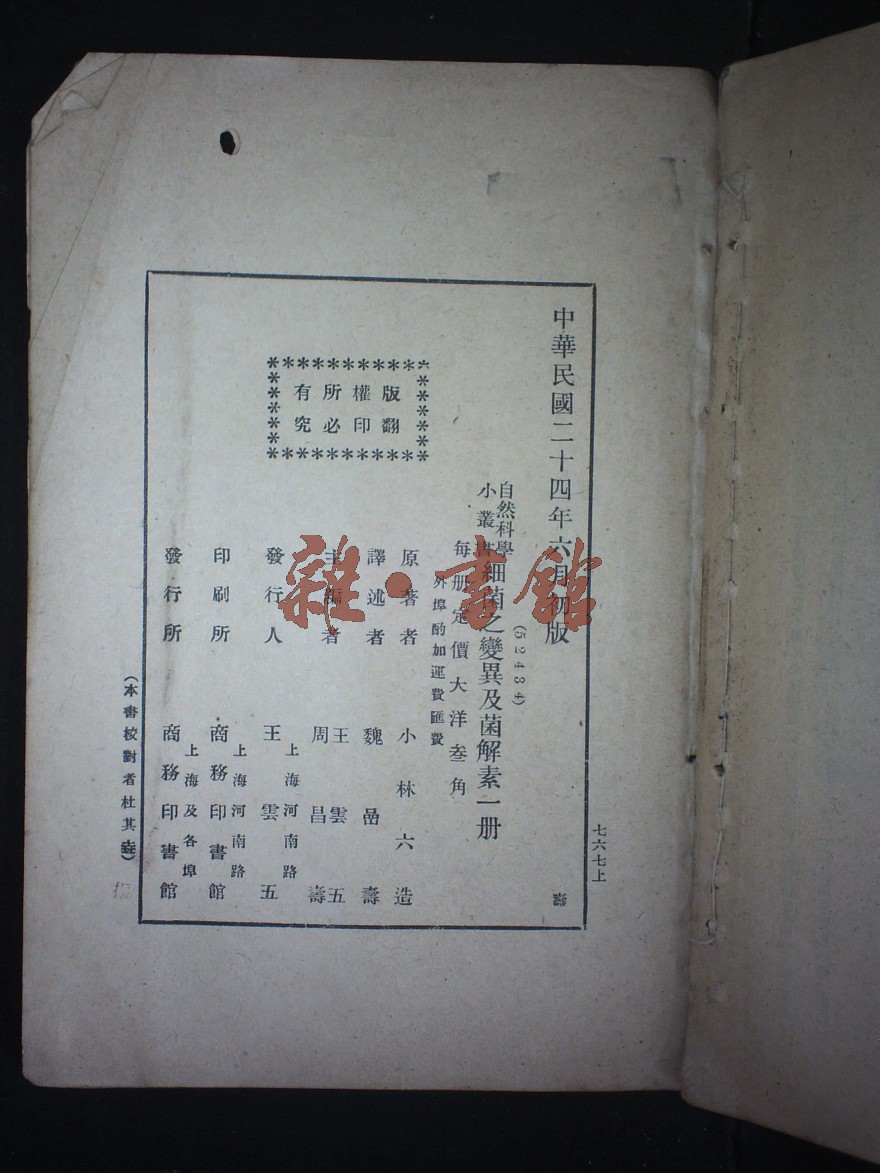 七六七上
中華民國二十四年六月初版
壽
(52434)
自然科學
小叢書
細菌之變異及菌解素一册
每册定價大洋叁角
外埠酌加運費匯費
版權所有
翻印必究
原著者 小林六造
譯述者 魏嵒壽
主編者 王雲五
周昌壽
發行人 王雲五
上海河南路
印刷所 商務印書館
上海河南路
發行所 商務印書館
上海及各埠
(本書校對者杜其
雜·書館